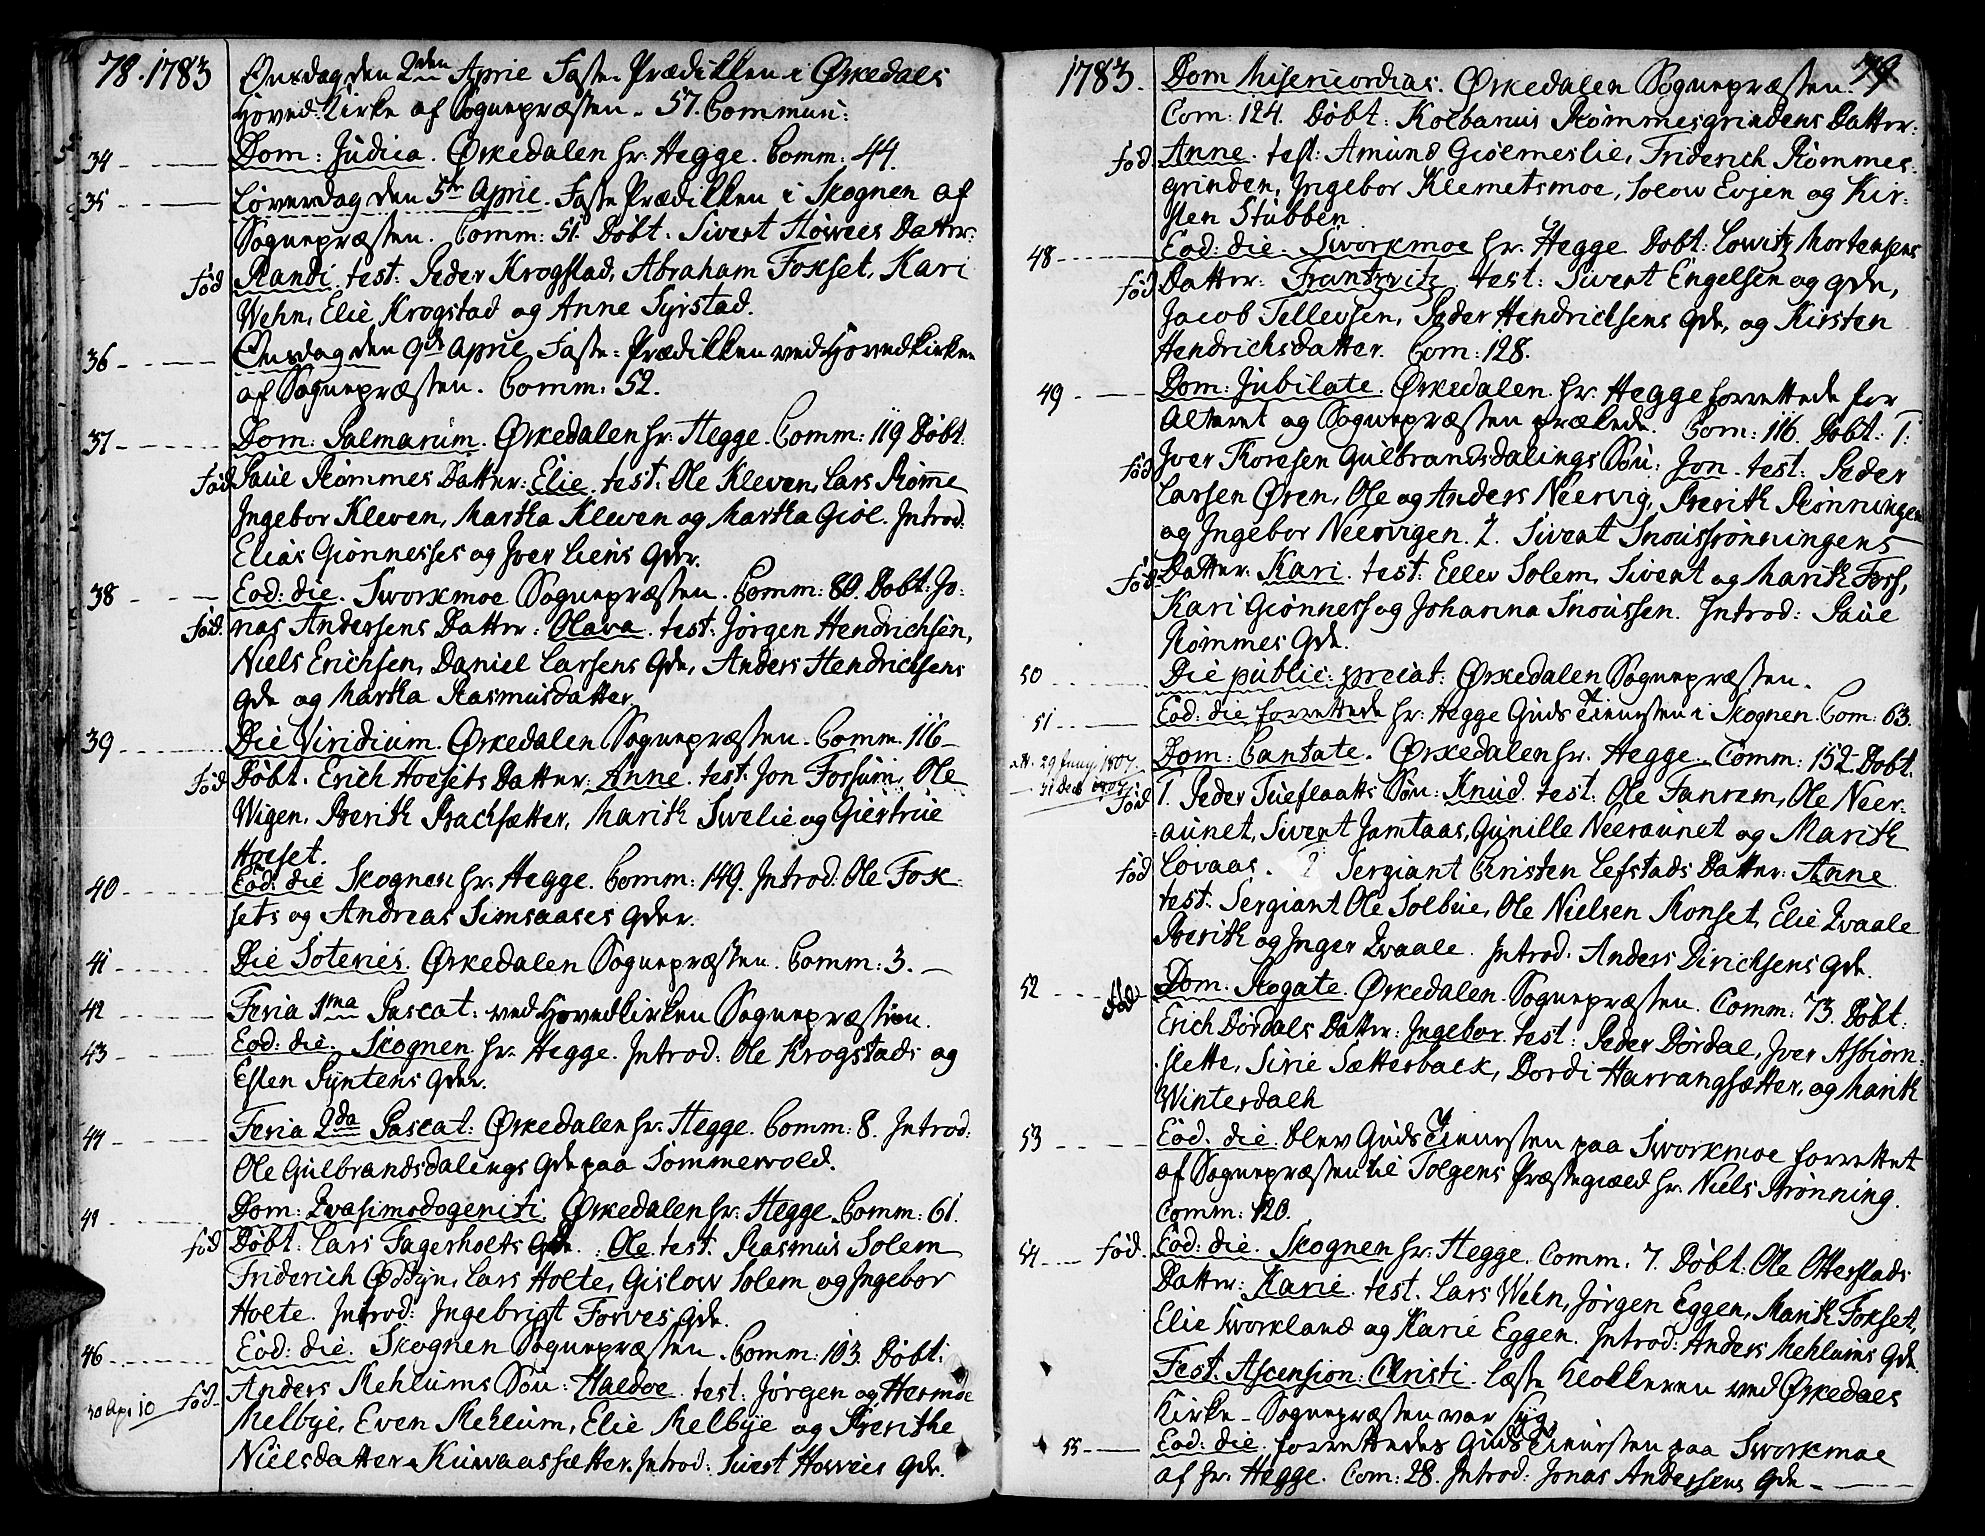 78. 1783 Onsdag den 2den April Faste-Prædikken i Ørkedals
Hoved-Kirke af Sognepræsten. 57. Commun:
34 Dom: Judica. Ørkedalen hr. Hegge. Comm: 44.
35 Løverdag den 5te April. Faste Prædikken i Skognen af
Sognepræsten. Comm: 51. Døbt. Sivert Howies Datter:
fød Randi. test: Peder Krogstad, Abraham Foxset, Kari
Wehn, Elie Krogstad og Anne Syrstad.
36 Onsdag den 9de April Faste-Prædikken ved Hovedkirken
af Sognepræsten. Comm: 52.
37 Dom: Palmarum. Ørkedalen hr. Hegge. Comm: 119 Døbt:
fød Paul Rømmes Datter: Elie. test: Ole Kleven, Lars Rømme
Ingebor Kleven, Martha Kleven og Martha Giøl. Introd:
Elias Giønnesses og Iver Liens Qdr.
38 Eod: die. Sworkmoe Sognepræsten. Comm: 80. Døbt: Jo-
fød. nas Andersens Datter: Olava. test: Jørgen Hendrichsen,
Niels Erichsen, Daniel Larsens Qde, Anders Hendrichsens
Qde og Martha Rasmusdatter.
39 Die Viridium. Ørkedalen Sognepræsten. Comm. 116
fød Døbt. Erich Hoelsets Datter: Anne. test: Jon Forsum, Ole
Wigen, Berith Brachsætter, Marith Swelie og Giertrue
Hoeset.
40 Eod: die Skognen hr. Hegge. Comm: 149. Introd: Ole Fox-
sets og Andreas Simsaases Qder.
41 Die Soteries. Ørkedalen Sognepræsten. Comm: 3.
42 Feria 1ma Pascat: ved Hovedkirken Sognepræsten.
43 Eod: die. Skognen hr. Hegge. Introd: Ole Krogstads og
Esten Syntens Qder.
44 Feria 2da Pascat: Ørkedalen hr. Hegge. Comm: 8. Introd:
Ole Gulbrandsdalings Qde paa Sommervold.
Dom: Qvasimodogeniti. Ørkedalen hr. Hegge. Comm: 61.
fød Døbt: Lars Fagerholts : Ole. test. Rasmus Solem
Friderich Oddyn, Lars Holte, Gislow Solem og Ingebor
Holte. Introd: Ingebrigt Forves Qde.
46 Eod: die. Skognen Sognepræsten. Comm: 103. Døbt:
fød Anders Mehlums Søn: Haldoe. test: Jørgen og
Melbye, Even Mehlum, Elie Melbye og Berithe
Nielsdatter Kuwaassætter. Introd: Sivert Howies Qde.
1783. 79
Dom Misericordias. Ørkedalen Sognepræsten.
Com: 124. Døbt: Kolbanus Rømmesgrindens Datter:
fød Anne. test: Amund Giølmeslie, Friderich Rømmes-
grinden, Ingebor Klemetsmoe, Solow Evjen og Kir-
sten Stubben
48 Eod: die. Sworkmoe hr. Hegge Døbt: Lowitz Mortensens
fød Datter: test: Sivert Engelsen og Qde,
Jacob Tellevsen, Peder Hendrichsens Qde, og Kirsten
Hendrichsdatter. Com: 128.
49 Dom: Jubilate. Ørkedalen. hr. Hegge forrettede for
Alteret og Sognepræsten prækede. Com: 116. Døbt: 1:
fød Iver Thoresen Gulbrandsdalings Søn: Jon. test: Peder
Larsen Øren, Ole og Anders Neervig, Berith Rønningen
og Ingebor Neervigen. 2. Sivert Snoussrønningens
fød Datter: Kari. test: Ellev Solem, Sivert og Marith Foss,
Kari Giønness og Johanna Snoussen. Introd: Paul
Rømmes Qde.
50 Die public: precat: Ørkedalen Sognepræsten.
51 Eod: die forrettede hr. Hegge Guds Tienesten i Skognen. Com: 63.
Dom: Cantate. Ørkedalen hr. Hegge. Comm: 152 Døbt.
fød 1. Peder Tueflaatts Søn: Knud. test: Ole Fanrem, Ole Neer-
aunet, Sivert Jamtaas, Gunille Neeraunet og Marith
fød Lovaas. 2 Sergiant Christen Lefstads Datter: Anne.
test: Sergiant Ole Solbue, Ole Nielsen Ronset, Elie Qvaale
Berith og Inger Qvaale. Introd: Anders Dirichsens Qde.
52 fød Dom. Rogate. Ørkedalen. Sognepræsten. Comm: 73. Døbt:
Erich Dørdals Datter: Ingebor. test: Peder Dørdal, Iver Asbiørn-
slette, Sirie Sætterback, Dordi Harrangsætter, og Marith
Winterdalh
53 Eod. die: blev Guds Tienesten paa Sworkmoe forrettet
af Sognepræsten til Tolgens Præstegiæld hr. Niels Brønning.
Comm: 120.
54 fød. Eod: die. Skognen hr. Hegge. Comm. 7. Døbt: Ole Otterstads
Datter: Karie. test. Lars Wehn, Jørgen Eggen, Marith Foxset,
Elie Sworkland og Karie Eggen. Introd: Anders Mehlums Qde.
Fest: Ascension: Christi. læste Klokkeren ved Ørkedals
Kirke - Sognepræsten var syg.
55 Eod: die. forrettedes Guds Tienesten paa Sworkmoe
af hr. Hegge. Com: 28. Introd: Jonas Andersens Qde